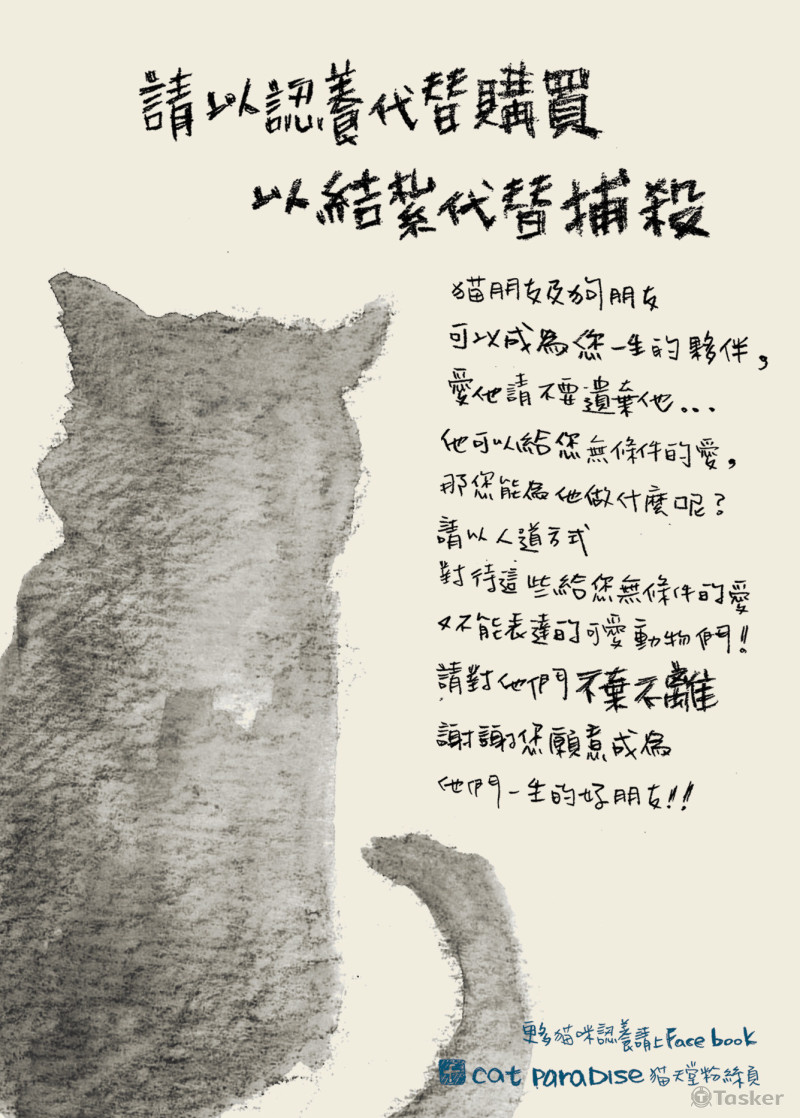 請以認養代替購買
以結紮代替捕殺
猫朋友及狗朋友
可以成為您一生的夥伴，
愛他請不要遺棄他...
他可以給您無條件的愛，
那您能為他做什麼呢？
請以人道方式
對待這些給您無條件的愛
又不能表達的可愛動物們！！
請對他們不棄不離
謝謝您願意成為
他們一生的好朋友！！
更多貓咪認養請上Face book
cat paraDise 猫天堂粉絲頁
Tasker